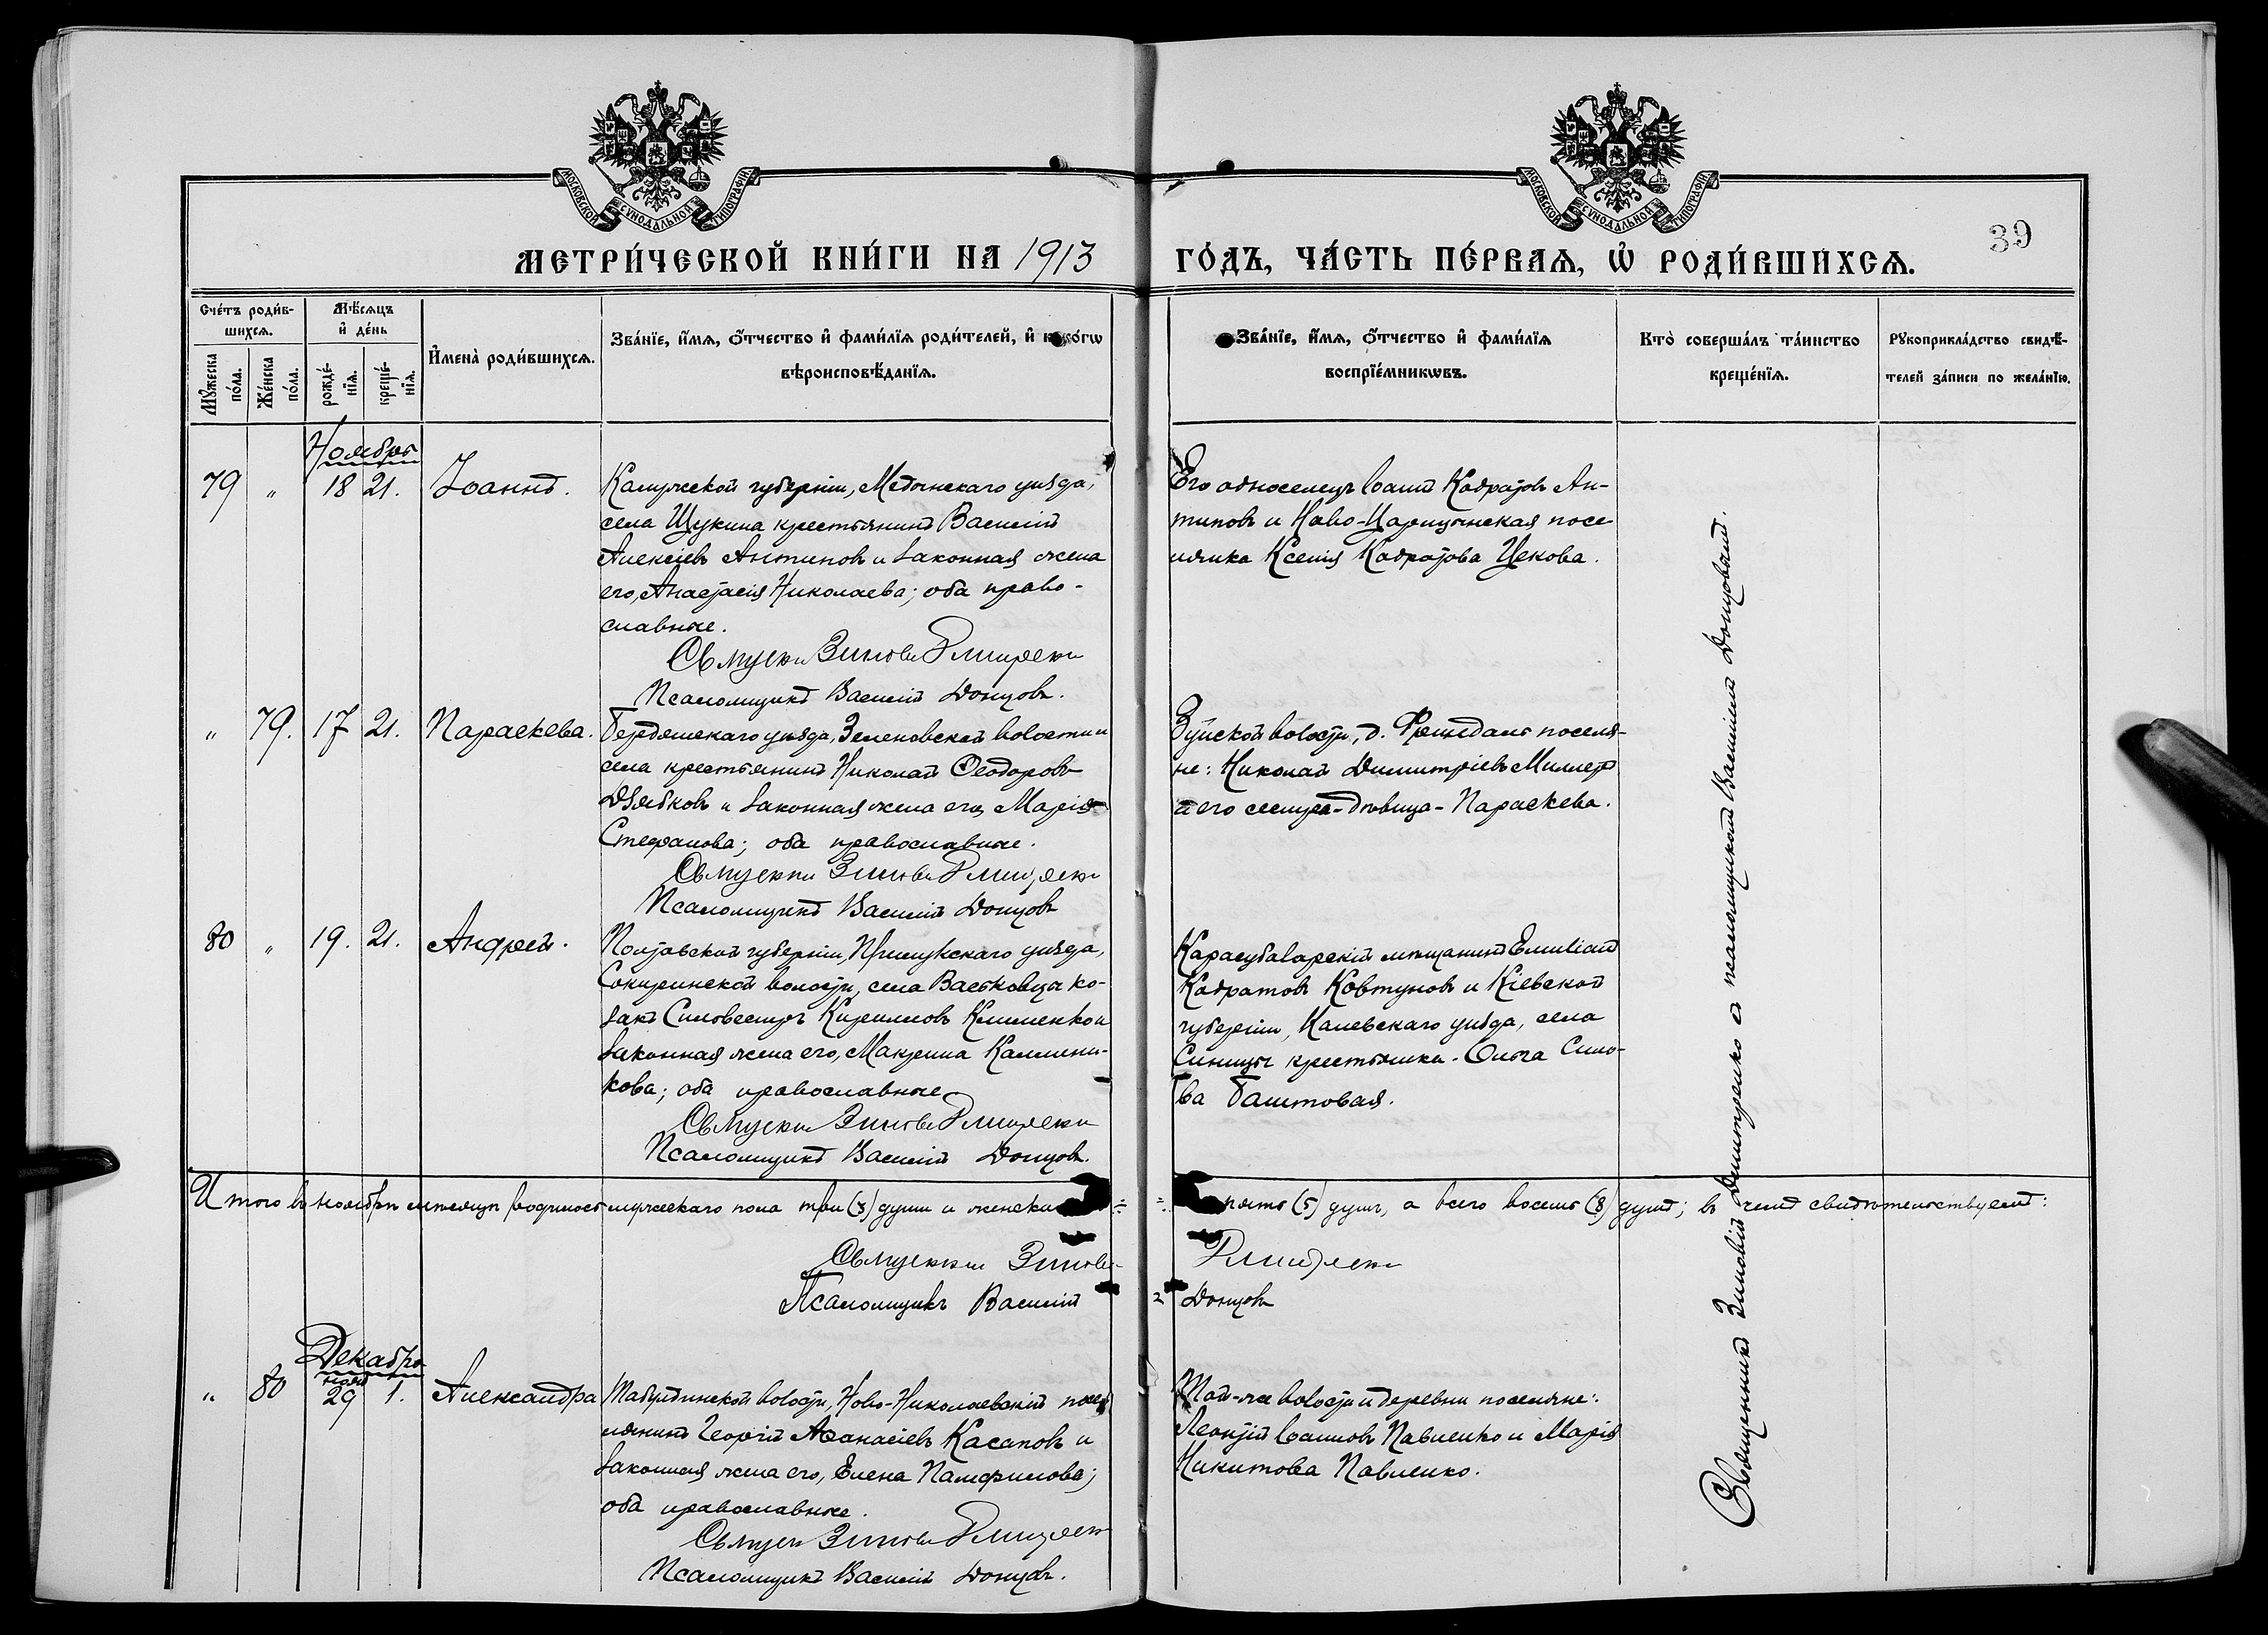 МОСКОВСКОЙ СѴНОДАЛЬНОЙ ТИПОГРАФІИ
МОСКОВСКОЙ СѴНОДАЛЬНОЙ ТИПОГРАФІИ
39
МЕТРИ́ЧЕСКОЙ КНИ́ГИ НА 1913 ГО́ДЪ, ЧА́СТЬ ПЕ́РВАЯ, Ѿ РОДИ́ВШИХСЯ.
Сче́тъ роди́в-
шихся.
Мѣ́сяцъ
и де́нь
Му́жеска по́ла.
Же́нска по́ла.
рожде́-нїя.
креще́-нїя.
Имена̀ роди́вшихся.
Зва́нїе, и́мя, о́тчество и фами́лїя роди́телей, и како́гѡ
вѣроисповѣ́данїя.
Зва́нїе, и́мя, о́тчество и фами́лїя
воспрїе́мникѡвъ.
Кто̀ соверша́лъ та́инство
креще́нїя.
Рукоприкла́дство свидѣ́-
телей за́писи по жела́нїю.
Ноябрь
79 " 18 21. Іоаннъ.
Калужской губерніи, Медынскаго уѣзда,
села Щукина крестьянинъ Василій
Алексіевъ Антиповъ и законная жена
его, Анастасія Николаева; оба право-
славные.
Священникъ Зиновій Дмитренко
Псаломщикъ Василій Донцовъ.
Его односелецъ Іоаннъ Кодратовъ Ан-
типовъ и Ново-Царицынская посе-
лянка Ксенія Кодратова Цекова.
" 79. 17 21. Параскева.
Бердянскаго уѣзда, Зеленовской волости и
села крестьянинъ Николай Ѳеодоровъ
Дзябковъ и законная жена его, Марія
Стефанова; оба православные.
Священникъ Зиновій Дмитренко
Псаломщикъ Василій Донцовъ
Зуйской волости, д. Фриндаль поселя-
не: Николай Димитріевъ Миллеръ
и его сестра-дѣвица-Параскева.
80 " 19. 21. Андрей.
Полтавской губерніи, Прилукскаго уѣзда,
Сокиринской волости, села Васьковцы ко-
закъ Силовестръ Кирилловъ Клименко и
законная жена его, Макрина Каллини-
кова; оба православные
Священникъ Зиновій Дмитренко
Псаломщикъ Василій Донцовъ.
Карасубазарскій мѣщанинъ Емиліанъ
Кодратовъ Ковтуновъ и Кіевской
губерніи, Каневскаго уѣзда, села
Синицы крестьянка Ольга Сило-
ва Баштовая.
Итого въ ноябрѣ мѣсяцѣ родилось мужескаго пола три (3) души и женска пять (5) душъ, а всего восемь (8) душъ; въ чемъ свидѣтельствуемъ:
Священникъ Зиновій Дмитренко
Псаломщикъ Василій Донцовъ
Декабрь
нояб
" 80 29 1. Александра
Табулдинской волости, Ново-Николаевскій посе-
лянинъ Георгій Аѳанасіевъ Касаповъ и
законная жена его, Елена Памфилова;
оба православные.
Священникъ Зиновій Дмитренко
Псаломщикъ Василій Донцовъ.
Той-же волости и деревни поселяне:
Леонтій Іоанновъ Павленко и Марія
Никитова Павленко.
Священникъ Зиновій Дмитренко съ псаломщикомъ Василіемъ Донцовымъ.